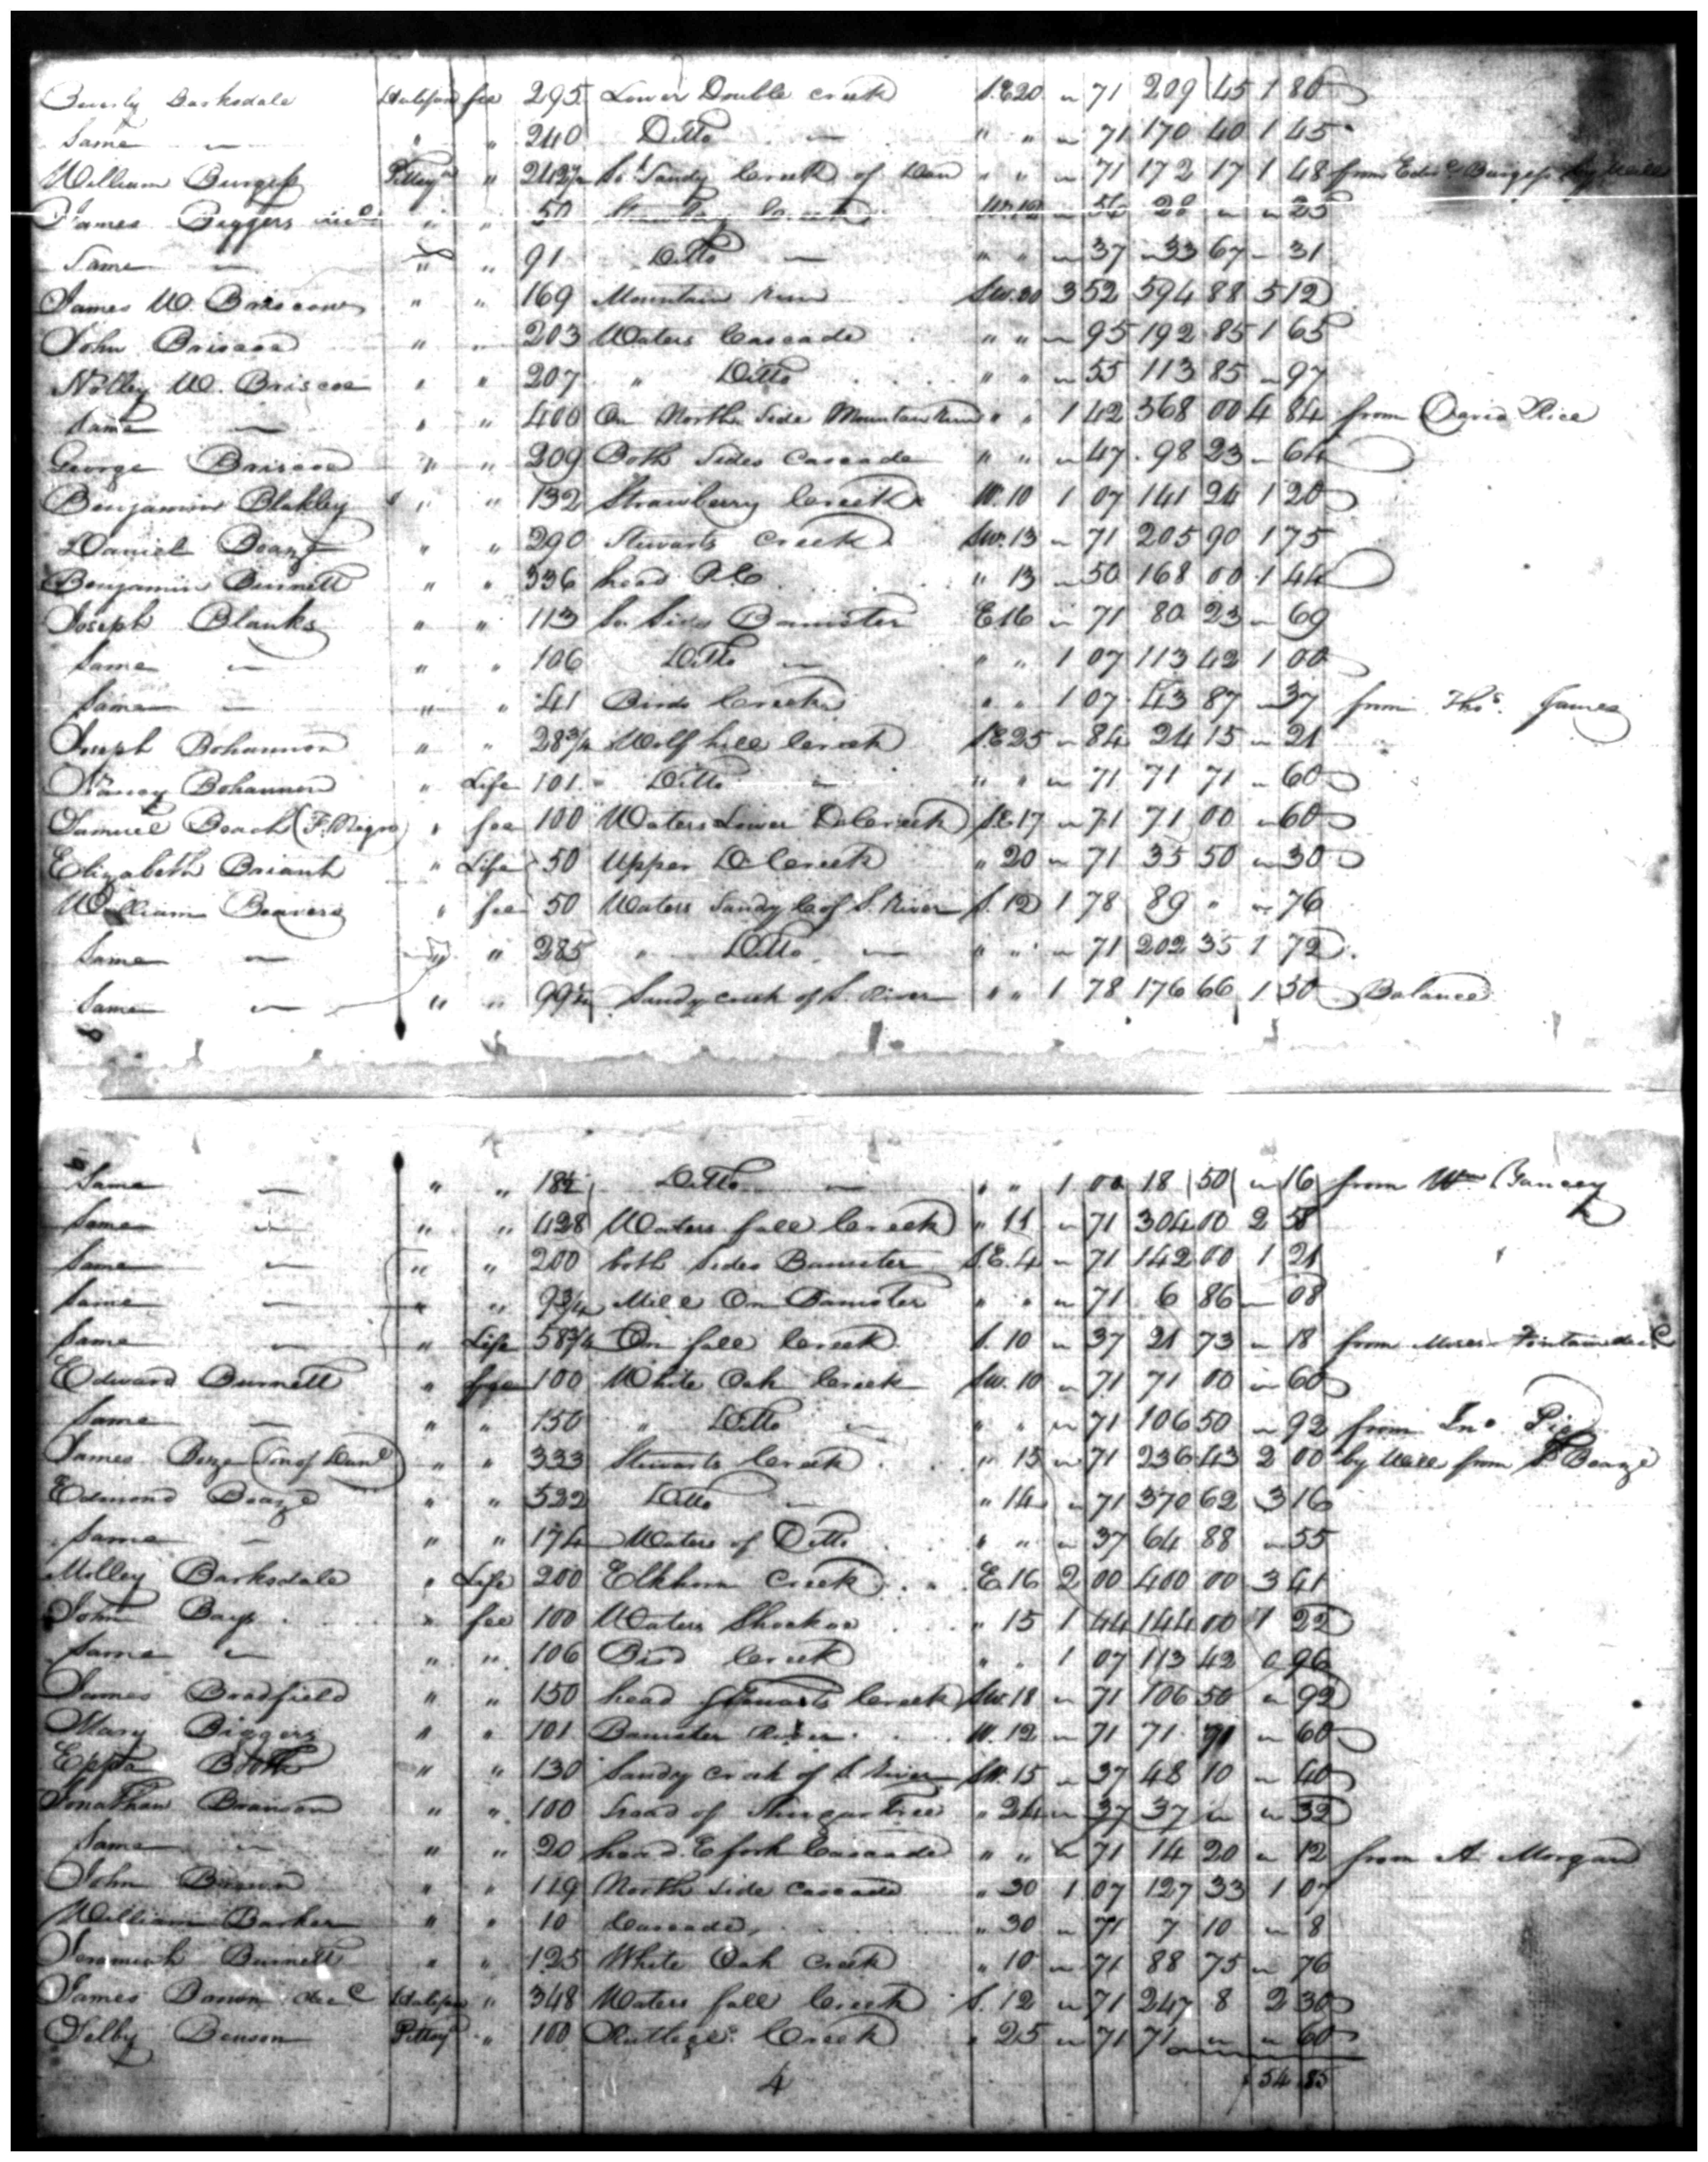 Beverly Barksdale Halifax fee 295 Lower Double creek S.E 20 " 71 209 45 1 80
Same " " " 240 Ditto " " " " 71 170 40 1 45
William Burgess Pittsya " 242½ So. Sandy Creek of Dan " " " 71 172 17 1 48 from Edwd Burgess by Will
James Biggers decd " " 50 Strawberry Creek W. 12 " 56 28 " " 25
Same " " " 91 Ditto " " " " 37 " 33 67 " 31
James W. Briscoe " " 169 Mountain Run SW. 30 3 52 594 88 5 12
John Briscoe " " 203 Waters Cascade " " " 95 192 85 1 65
Notley W. Briscoe " " 207 " Ditto " " " 55 113 85 " 97
Same " " " 400 On North Side Mountain Run " " 1 42 568 00 4 84 from David Rice
George Briscoe " " 209 Both Sides Cascade " " " 47 98 23 " 64
Benjamin Blakley " " 132 Strawberry Creek W. 10 1 07 141 24 1 20
Daniel Beaze " " 290 Stewarts Creek SW. 13 " 71 205 90 1 75
Benjamin Burnett " " 336 head P.C. " 13 " 50 168 00 1 44
Joseph Blanks " " 113 So. Side Banister E 16 " 71 80 23 " 69
Same " " " 106 Ditto " " " 1 07 113 42 1 00
Same " " " 41 Birds Creek " " 1 07 43 87 " 37 from Thos. James
Joseph Bohannon " " 28¾ Wolf hill Creek S.E 25 " 84 24 15 " 21
Nancy Bohannon " Life 101 " Ditto " " " " 71 71 71 " 60
Samuel Beach (F. Negro) " fee 100 Waters Lower D. Creek S.E 17 " 71 71 00 " 60
Elizabeth Briant " Life 50 Upper D. Creek " 20 " 71 35 50 " 30
William Beavers " fee 50 Waters Sandy C. of S. River S. 12 1 78 89 " " 76
Same " " " 285 " Ditto " " " " 71 202 35 1 72
Same " " " 99¼ Sandy creek of S. River " " 1 78 176 66 1 50 Balance
Same " " " 18½ Ditto " " " 1 00 18 50 " 16 from Wm Yancey
Same " " " 428 Waters fall Creek " 11 " 71 304 00 2 58
Same " " " 200 both Sides Banister S.E. 4 " 71 142 00 1 21
Same " " " 9¾ Mill On Banister " " " 71 6 86 " 08
Same " " Life 58¾ On fall Creek S. 10 " 37 21 73 " 18 from Moses Fontaine decd
Edward Burnett " fee 100 White Oak Creek SW. 10 " 71 71 00 " 60
Same " " " 150 " Ditto " " " " 71 106 50 " 92 from Jno
James Beaze (Son of Danl) " " 333 Stewarts Creek " 15 " 71 236 43 2 00 by Will from D. Beaze
Edmond Beaze " " 522 Ditto " " 14 " 71 370 62 3 16
Same " " " 174 Waters of Ditto " " " 37 64 88 " 55
Molley Barksdale " Life 200 Elkhorn Creek E. 16 2 00 400 00 3 41
John Bays " fee 100 Waters Shockoe " 15 1 44 144 00 1 22
Same " " " 106 Bird Creek " " 1 07 113 42 0 96
James Bradfield " " 150 head Stewarts Creek SW. 18 " 71 106 50 " 92
Mary Biggers " " 101 Banister River W. 12 " 71 71 71 " 60
Eppa Booth " " 130 Sandy creek of S. River SW. 15 " 37 48 10 " 40
Jonathan Branson " " 100 head of Shugar Tree " 24 " 37 37 " " 32
Same " " " 20 head E fork Cascade " " " 71 14 20 " 12 from A. Morgan
John " " 119 North Side Cascade " 30 1 07 127 33 1 07
William Barker " " 10 Cascade " 30 " 71 7 10 " 8
Jeremiah Burnett " " 125 White Oak Creek " 10 " 71 88 75 " 76
James decd Halifax " 348 Waters fall Creek S. 12 " 71 247 8 2 30
Selby Benson Pittsya " 100 Rutlege Creek " 25 " 71 71 " " 60
4 54 85